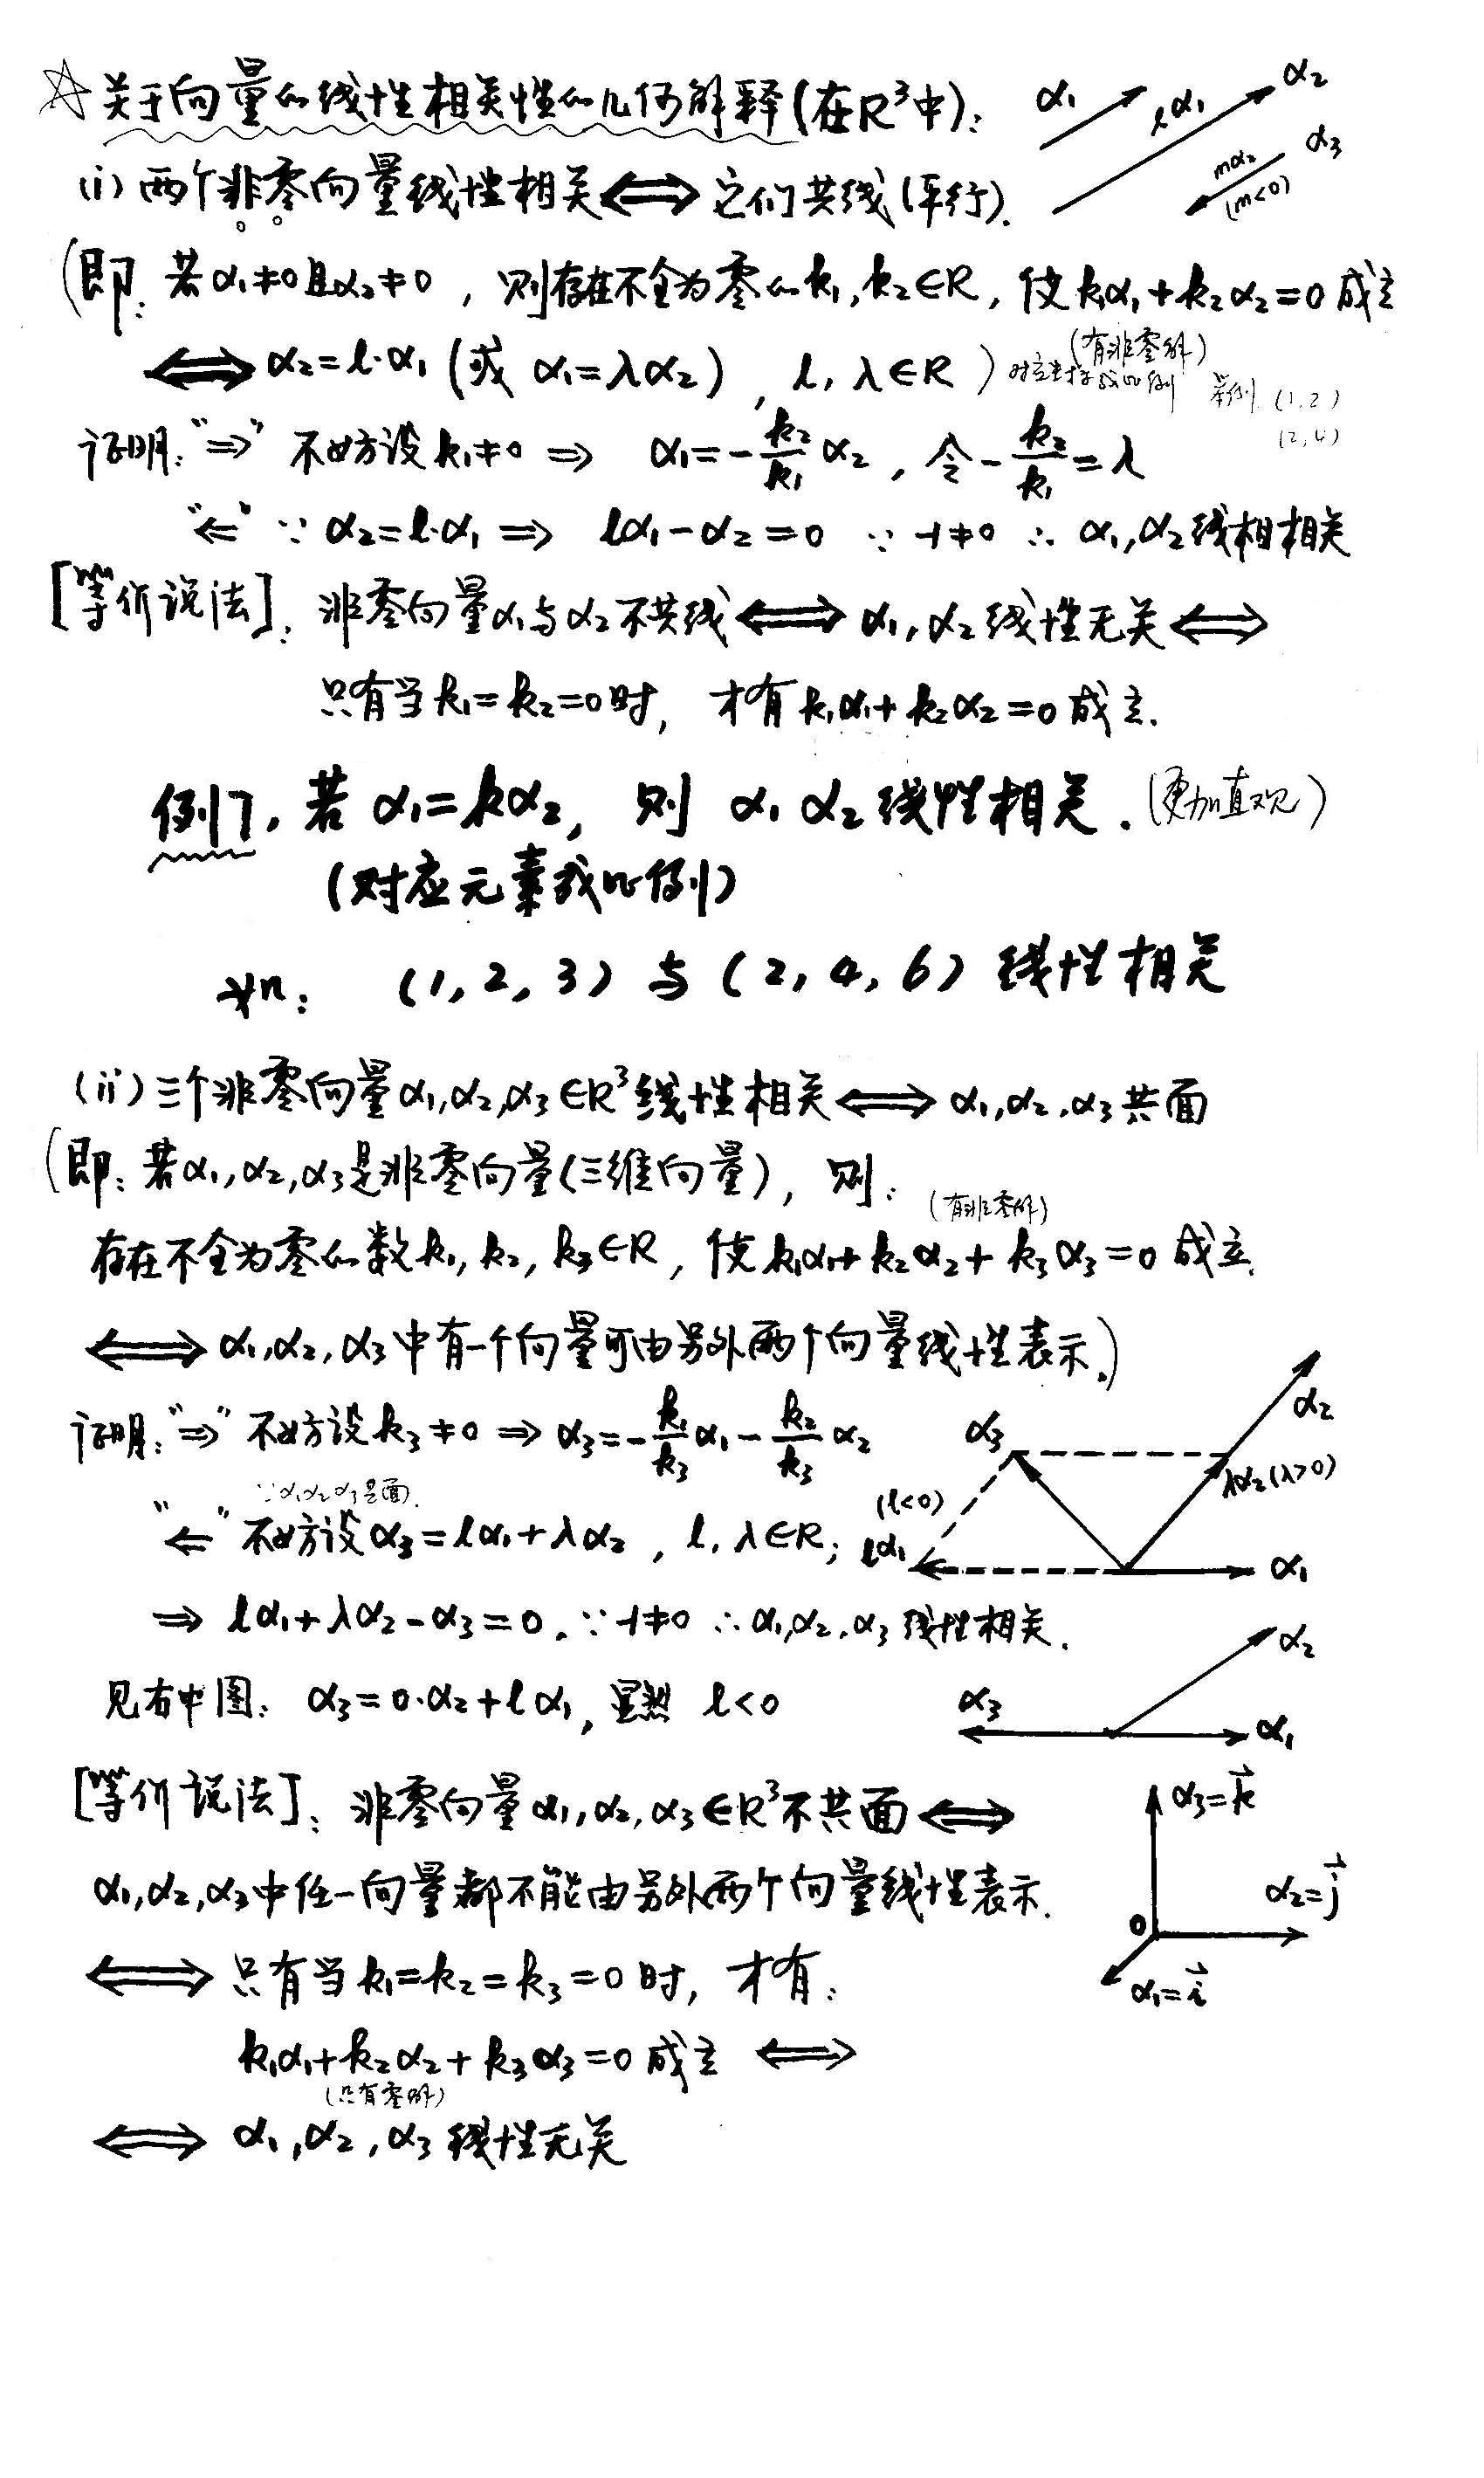 ☆关于向量的线性相关性的几何解释(在R³中):
α₁ lα₁ α₂
mα₂ (m<0) α₃
(i) 两个非零向量线性相关⟺它们共线(平行).
(即: 若α₁≠0且α₂≠0, 则存在不全为零的k₁,k₂∈R, 使k₁α₁+k₂α₂=0成立
(有非零解)
⟺ α₂=l·α₁ (或 α₁=λα₂), l, λ∈R ) 对应坐标成比例 举例 (1,2)
(2,4)
证明:"⇒" 不妨设k₁≠0 ⇒ α₁=-k₂/k₁ α₂, 令-k₂/k₁=λ
"⇐" ∵ α₂=l·α₁ ⇒ lα₁-α₂=0 ∵ -1≠0 ∴ α₁,α₂线相相关
[等价说法]: 非零向量α₁与α₂不共线⟺α₁,α₂线性无关⟺
只有当k₁=k₂=0时, 才有k₁α₁+k₂α₂=0成立.
例7, 若 α₁=kα₂, 则 α₁ α₂ 线性相关. (更加直观)
(对应元素成比例)
如: (1,2,3) 与 (2,4,6) 线性相关
(ii) 三个非零向量α₁,α₂,α₃∈R³线性相关⟺α₁,α₂,α₃共面
(即: 若α₁,α₂,α₃是非零向量(三维向量), 则:
(有非零解)
存在不全为零的数k₁,k₂,k₃∈R, 使k₁α₁+k₂α₂+k₃α₃=0 成立.
⟺ α₁,α₂,α₃中有一个向量可由另外两个向量线性表示.)
证明:"⇒" 不妨设k₃≠0 ⇒ α₃=-k₁/k₃ α₁-k₂/k₃ α₂
∵α₁α₂α₃共面.
"⇐" 不妨设α₃=lα₁+λα₂, l, λ∈R;
α₃ α₂
λα₂(λ>0)
(l<0)
lα₁ α₁
⇒ lα₁+λα₂-α₃=0. ∵-1≠0 ∴α₁,α₂,α₃线性相关.
见右中图: α₃=0·α₂+lα₁, 显然 l<0
α₂
α₃ α₁
[等价说法]: 非零向量α₁,α₂,α₃∈R³不共面⟺
α₁,α₂,α₃中任一向量都不能由另外两个向量线性表示.
α₃=k⃗
α₂=j⃗
O
α₁=i⃗
⟺ 只有当k₁=k₂=k₃=0时, 才有:
k₁α₁+k₂α₂+k₃α₃=0成立 ⟺
(只有零解)
⟺ α₁,α₂,α₃线性无关